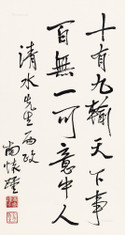 十有九輸天下事
百無一可意中人
清水先生兩政
南懷瑾